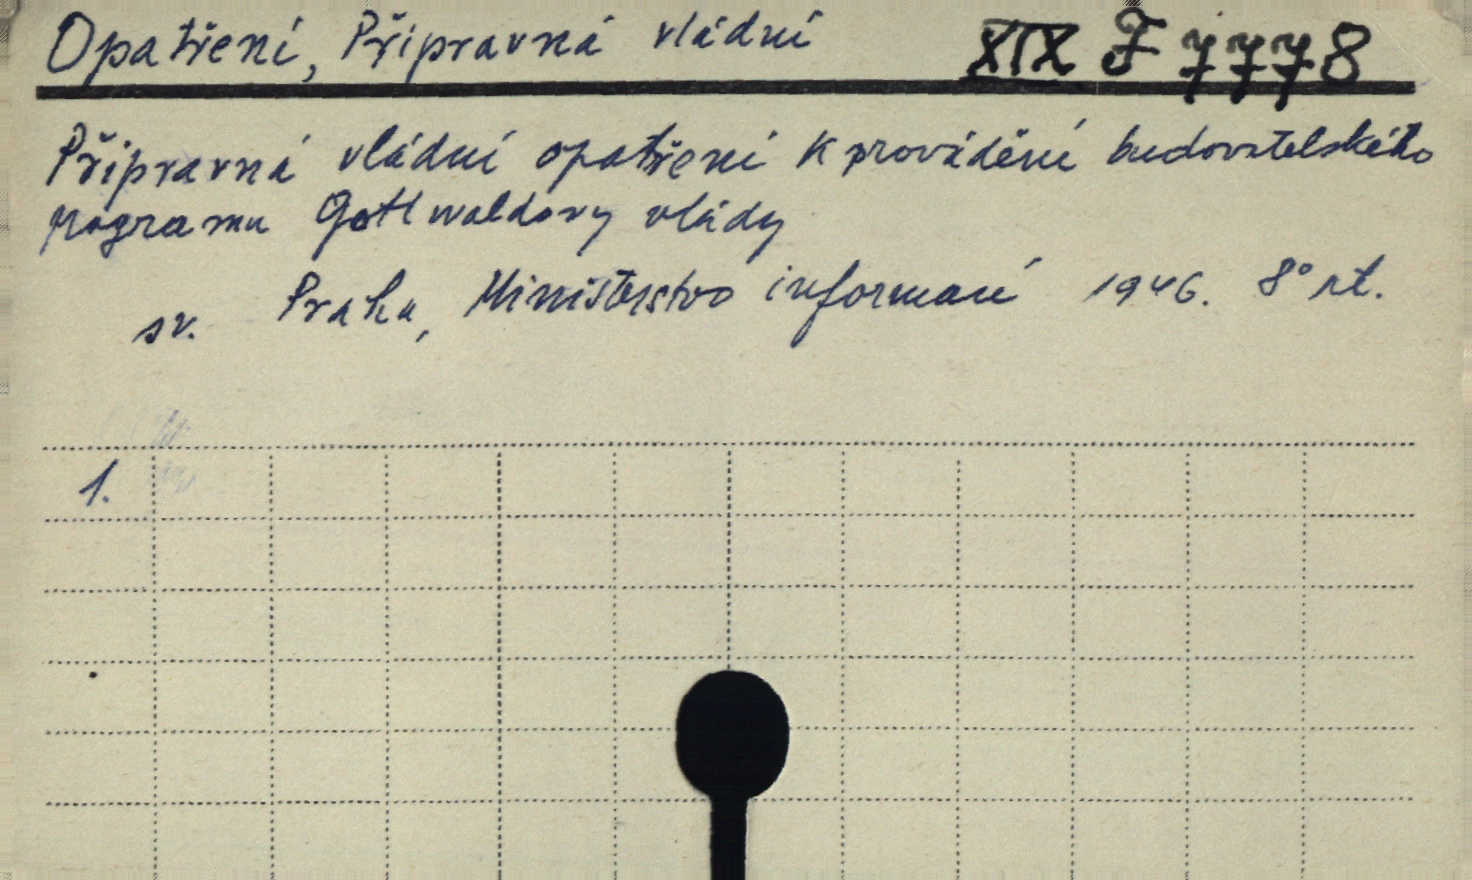 Opatření, Přípravná vládní XIX F 7778
Přípravná vládní opatření k provádění budovatelského
programu Gottwaldovy vlády
sv. Praha, Ministerstvo informací 1946. 8° rt.
1.